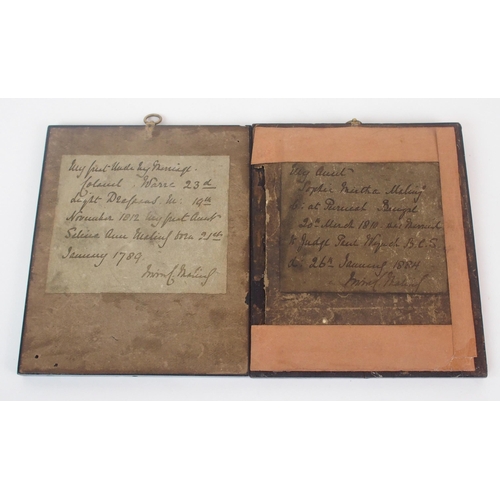 My great Uncle by Marriage
Colonel 23rd
Light Dragoons M: 19th
November 1812 my great Aunt
Selina Ann Maling born 21st
January 1789
Maling
My Aunt
Sophia Maling
B: at Purneah Bengal
20th March 1810
to Judge B.C.S
26th January 1884
Maling